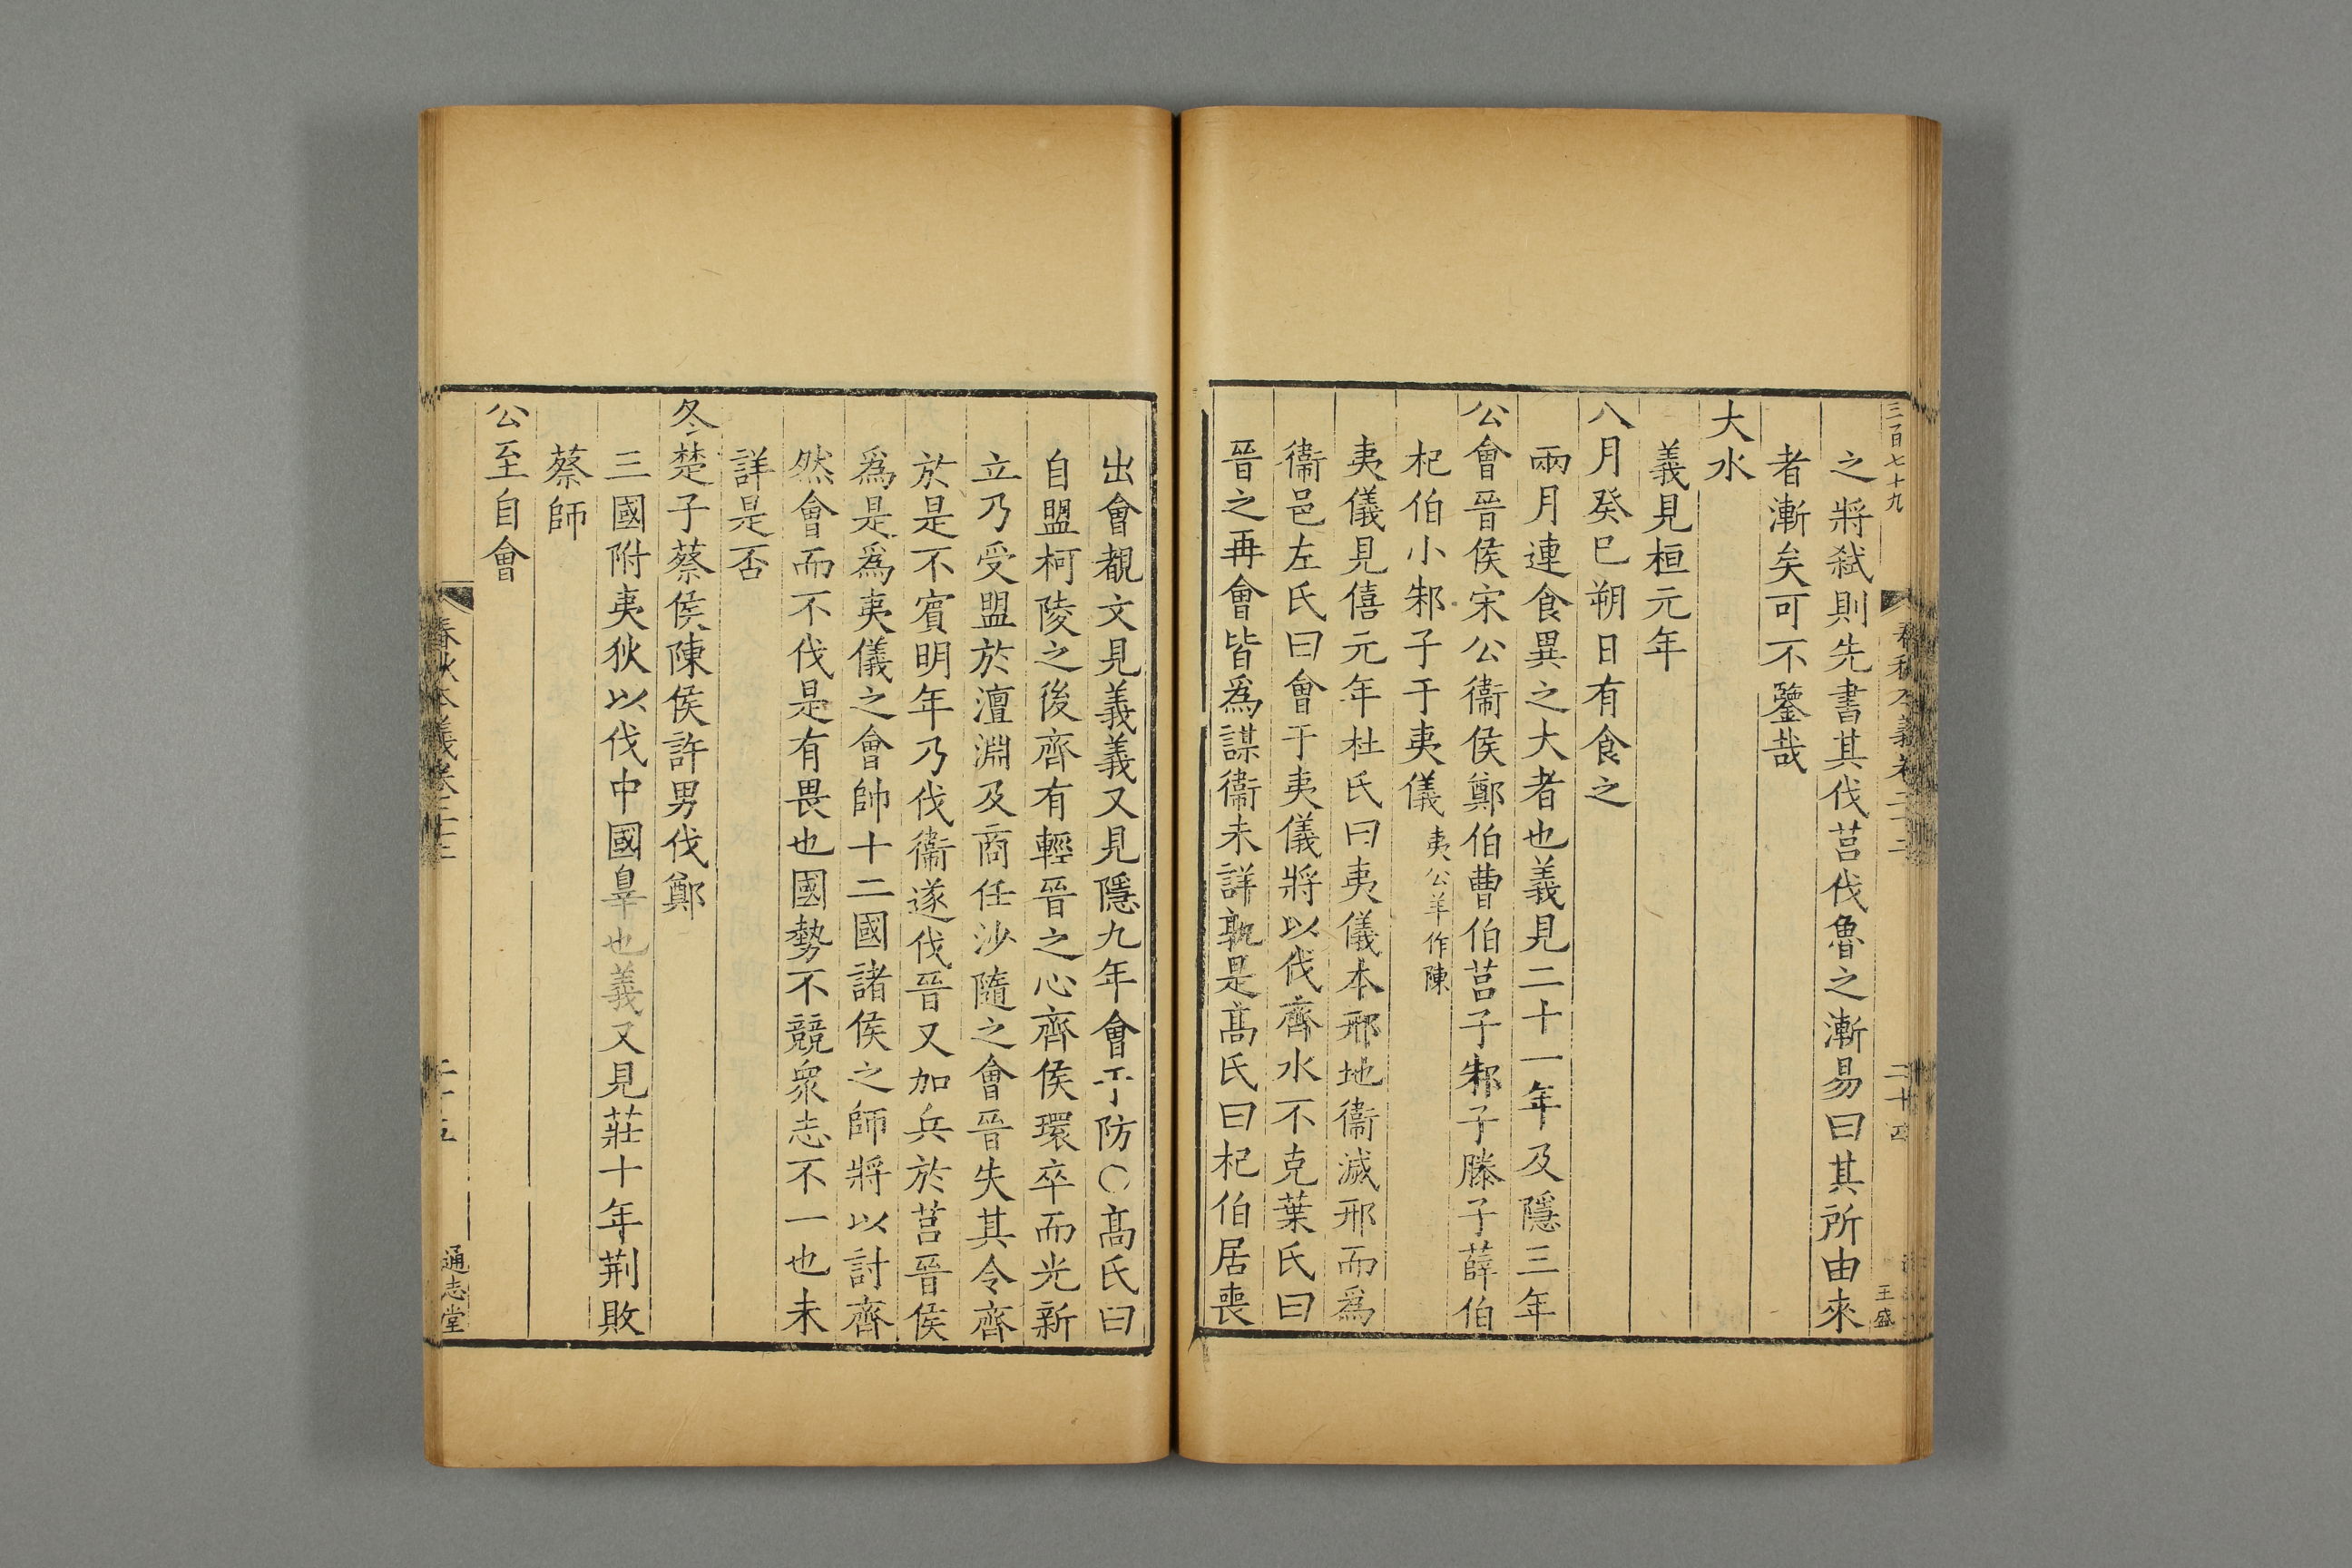 三百七十九
春秋本義卷二十二
二十四
王盛
之將弑則先書其伐莒伐魯之漸易曰其所由來
者漸矣可不鑒哉
大水
義見桓元年
八月癸巳朔日有食之
兩月連食異之大者也義見二十一年及隱三年
公會晉侯宋公衞侯鄭伯曹伯莒子邾子滕子薛伯
杞伯小邾子于夷儀夷公羊作陳
夷儀見僖元年杜氏曰夷儀本邢地衞滅邢而爲
衞邑左氏曰會于夷儀將以伐齊水不克葉氏曰
晉之再會皆爲謀衞未詳孰是髙氏曰杞伯居喪
出會覩文見義義又見隱九年會于防○髙氏曰
自盟柯陵之後齊有輕晉之心齊侯環卒而光新
立乃受盟於澶淵及商任沙隨之會晉失其令齊
於是不賓明年乃伐衞遂伐晉又加兵於莒晉侯
爲是爲夷儀之會帥十二國諸侯之師將以討齊
然會而不伐是有畏也國勢不競衆志不一也未
詳是否
冬楚子蔡侯陳侯許男伐鄭
三國附夷狄以伐中國辠也義又見莊十年荆敗
蔡師
公至自會
春秋本義卷二十二
二十五
通志堂